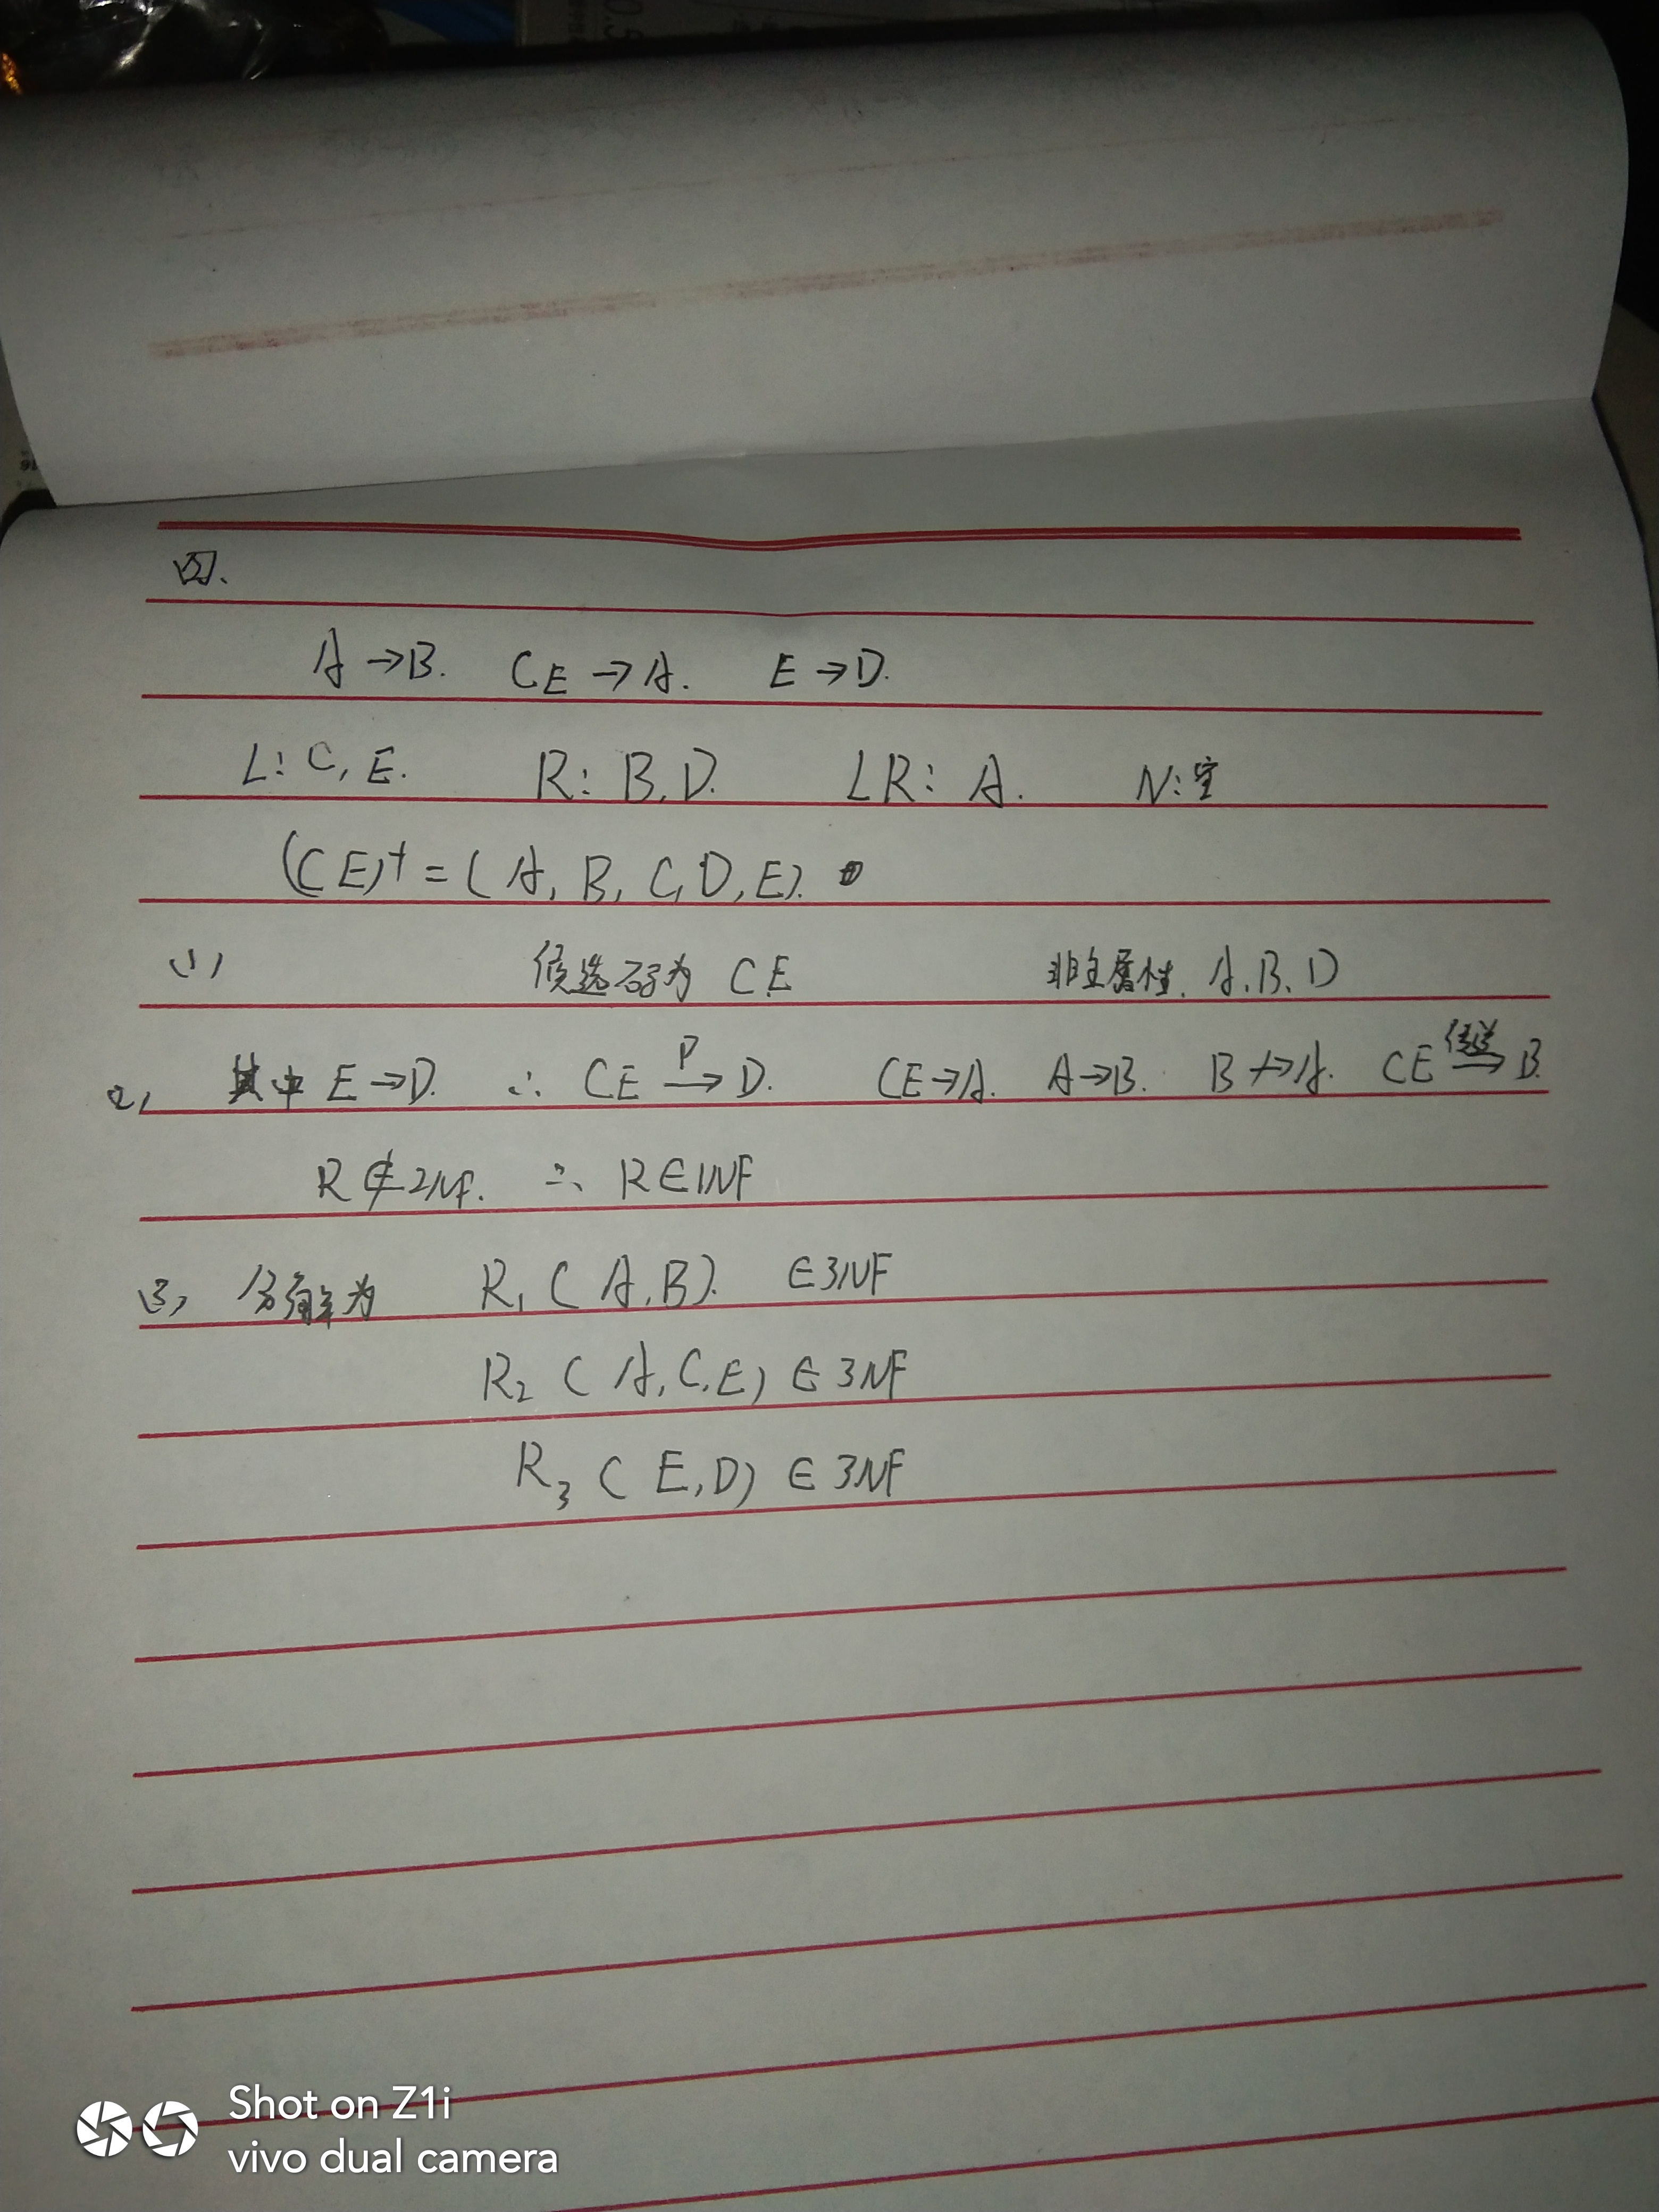 四.
A→B. CE→A. E→D.
L: C, E. R: B, D. LR: A. N: 空
(CE)⁺ = (A, B, C, D, E).
(1) 候选码为 CE 非主属性. A、B、D
2, 其中 E→D. ∴ CE P→ D. CE→A. A→B. B↛A. CE 传递→ B.
R∉2NF. ∴ R∈1NF
(3) 分解为 R₁ (A, B). ∈3NF
R₂ (A, C, E) ∈ 3NF
R₃ (E, D) ∈ 3NF
Shot on Z1i
vivo dual camera